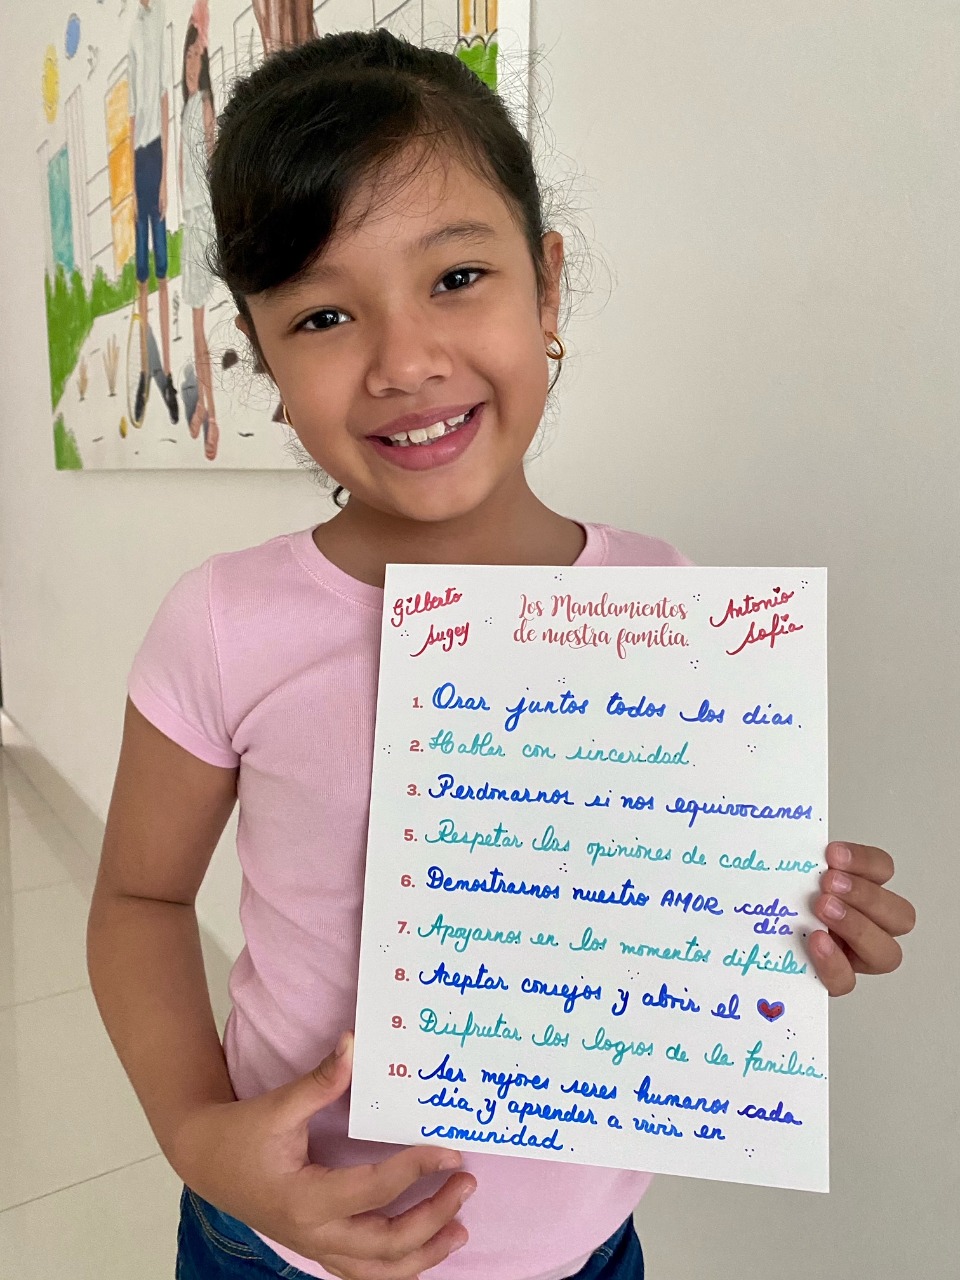 Gilberto
Sugey
Los Mandamientos
de nuestra familia.
Antonio
Sofía
1. Orar juntos todos los días.
2. Hablar con sinceridad.
3. Perdonarnos si nos equivocamos.
5. Respetar las opiniones de cada uno.
6. Demostrarnos nuestro AMOR cada
día.
7. Apoyarnos en los momentos difíciles.
8. Aceptar consejos y abrir el
9. Disfrutar los logros de la familia.
10. Ser mejores seres humanos cada
día y aprender a vivir en
comunidad.